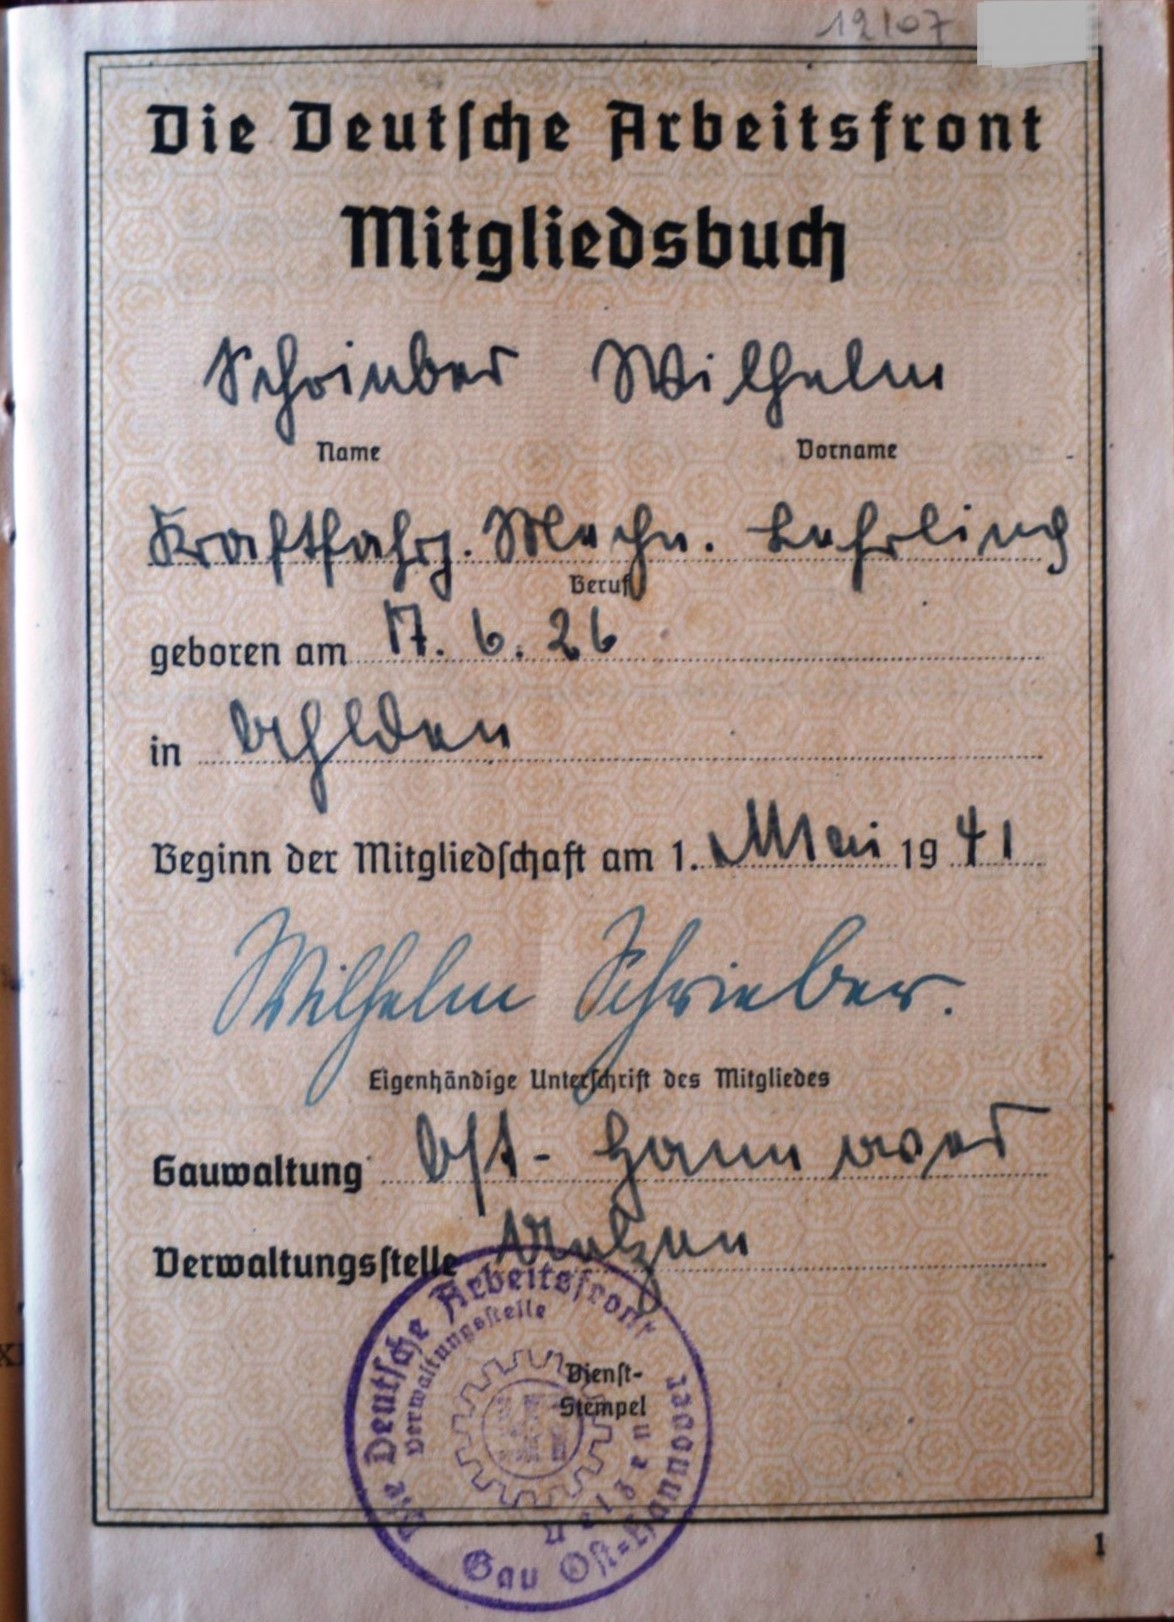 12107
Die Deutsche Arbeitsfront
Mitgliedsbuch
Schrieber Wilhelm
Name Vorname
Kraftfahrz. Mechn. Lehrling
Beruf
geboren am 17. 6. 26
in Ahlden
Beginn der Mitgliedschaft am 1. Mai 1941
Wilhelm Schrieber.
Eigenhändige Unterschrift des Mitgliedes
Gauwaltung Ost-Hannover
Verwaltungsstelle Uelzen
Die Deutsche Arbeitsfront
Verwaltungsstelle
Dienst-
Stempel
Uelzen
Gau Ost-Hannover
1